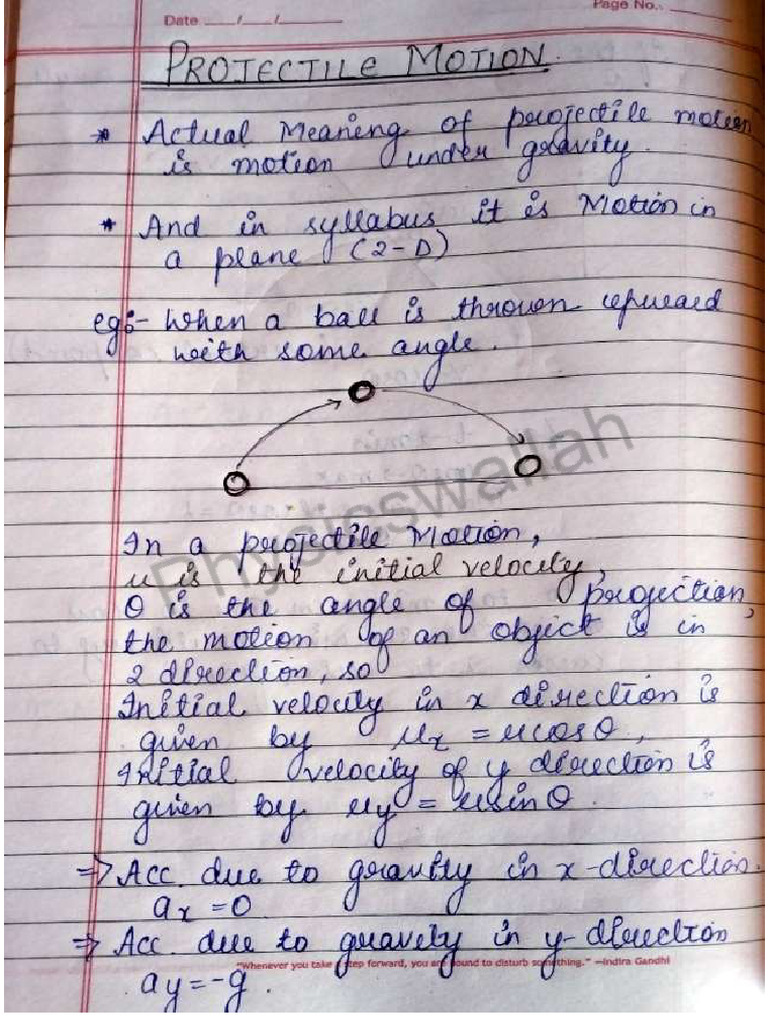 Date __/__/____
Page No.:
PROJECTILE MOTION.
* Actual Meaning of projectile motion
is motion under gravity.
* And in syllabus it is Motion in
a plane (2-D)
eg:- When a ball is thrown upward
with some angle.
Physicswallah
In a projectile Motion,
u is the initial velocity,
θ is the angle of projection,
the motion of an object is in
2 direction, so
Initial velocity in x direction is
given by ux = ucosθ,
Initial velocity of y direction is
given by uy = usinθ.
⇒ Acc. due to gravity in x-direction.
ax = 0
⇒ Acc. due to gravity in y-direction
"Whenever you take a step forward, you are bound to disturb something." –Indira Gandhi
ay = -g.